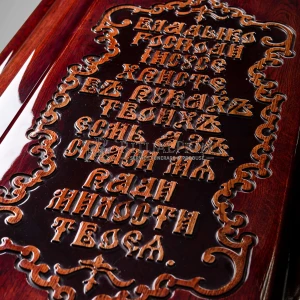 ВЛАДЫКО
ГОСПОДИ
ІИСУСЕ
ХРИСТЕ
ВЪ РУКАХЪ
ТВОИХЪ
ЕСМЬ АЗЪ,
СПАСИ МЯ
РАДИ
МИЛОСТИ
ТВОЕЯ.